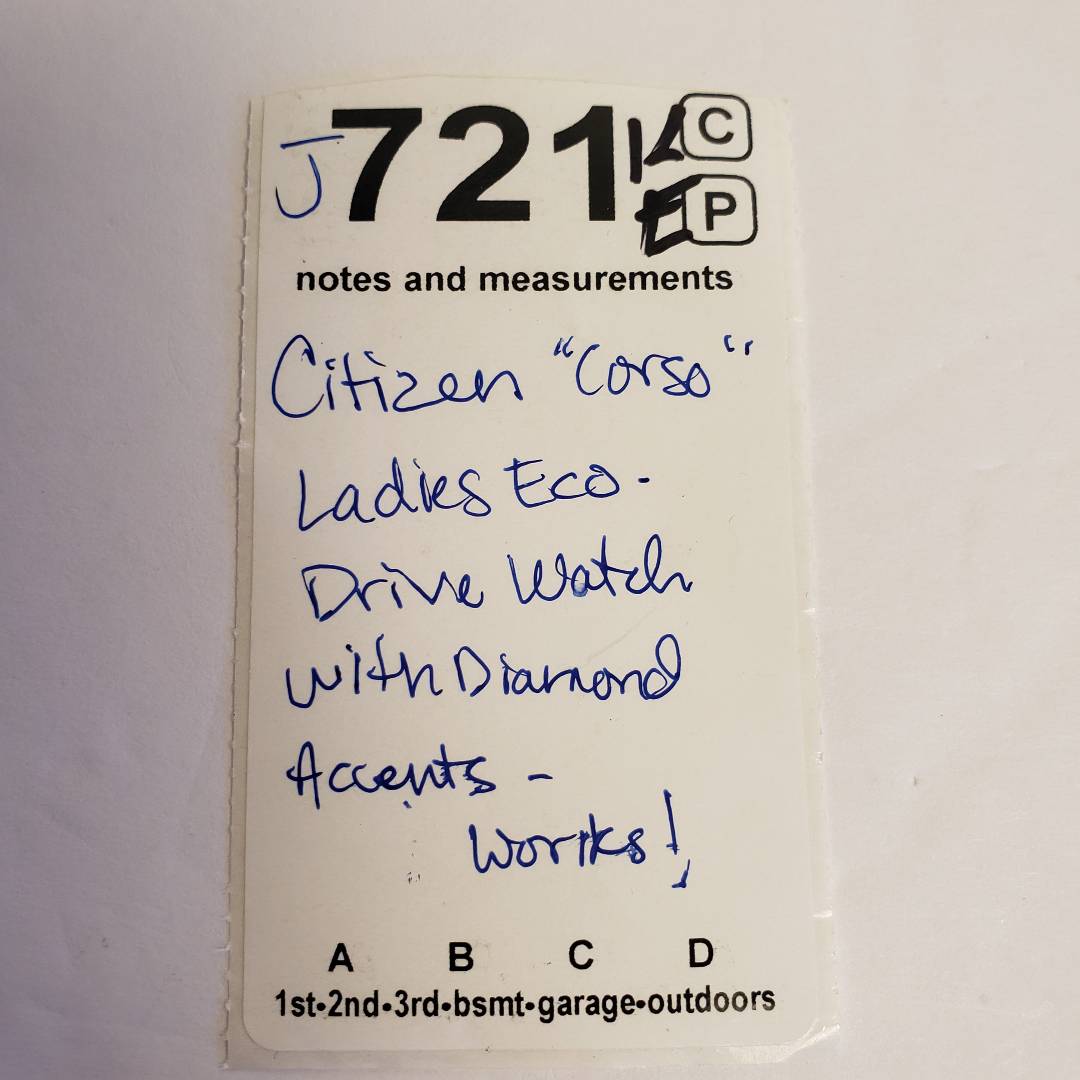 J721 K C
E P
notes and measurements
Citizen "Corso"
Ladies Eco-
Drive Watch
with Diamond
Accents -
Works!
A B C D
1st•2nd•3rd•bsmt•garage•outdoors